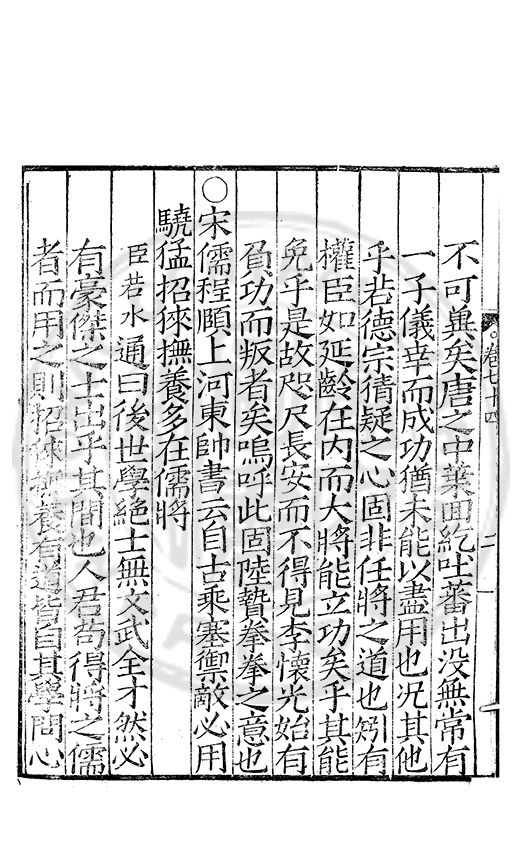 卷七十四
二
不可兾矣唐之中葉回紇吐蕃出没無常有
一子儀幸而成功猶未能以盡用也况其他
乎若德宗猜疑之心固非任將之道也矧有
權臣如延齡在内而大將能立功矣乎其能
免乎是故咫尺長安而不得見李懷光始有
負功而叛者矣嗚呼此固陸贄拳拳之意也
○宋儒程頤上河東帥書云自古乘塞禦敵必用
驍猛招徠撫養多在儒將
臣若水通曰後世學絶士無文武全才然必
有豪傑之士出乎其間也人君苟得將之儒
者而用之則招徠撫養有道皆自其學問心